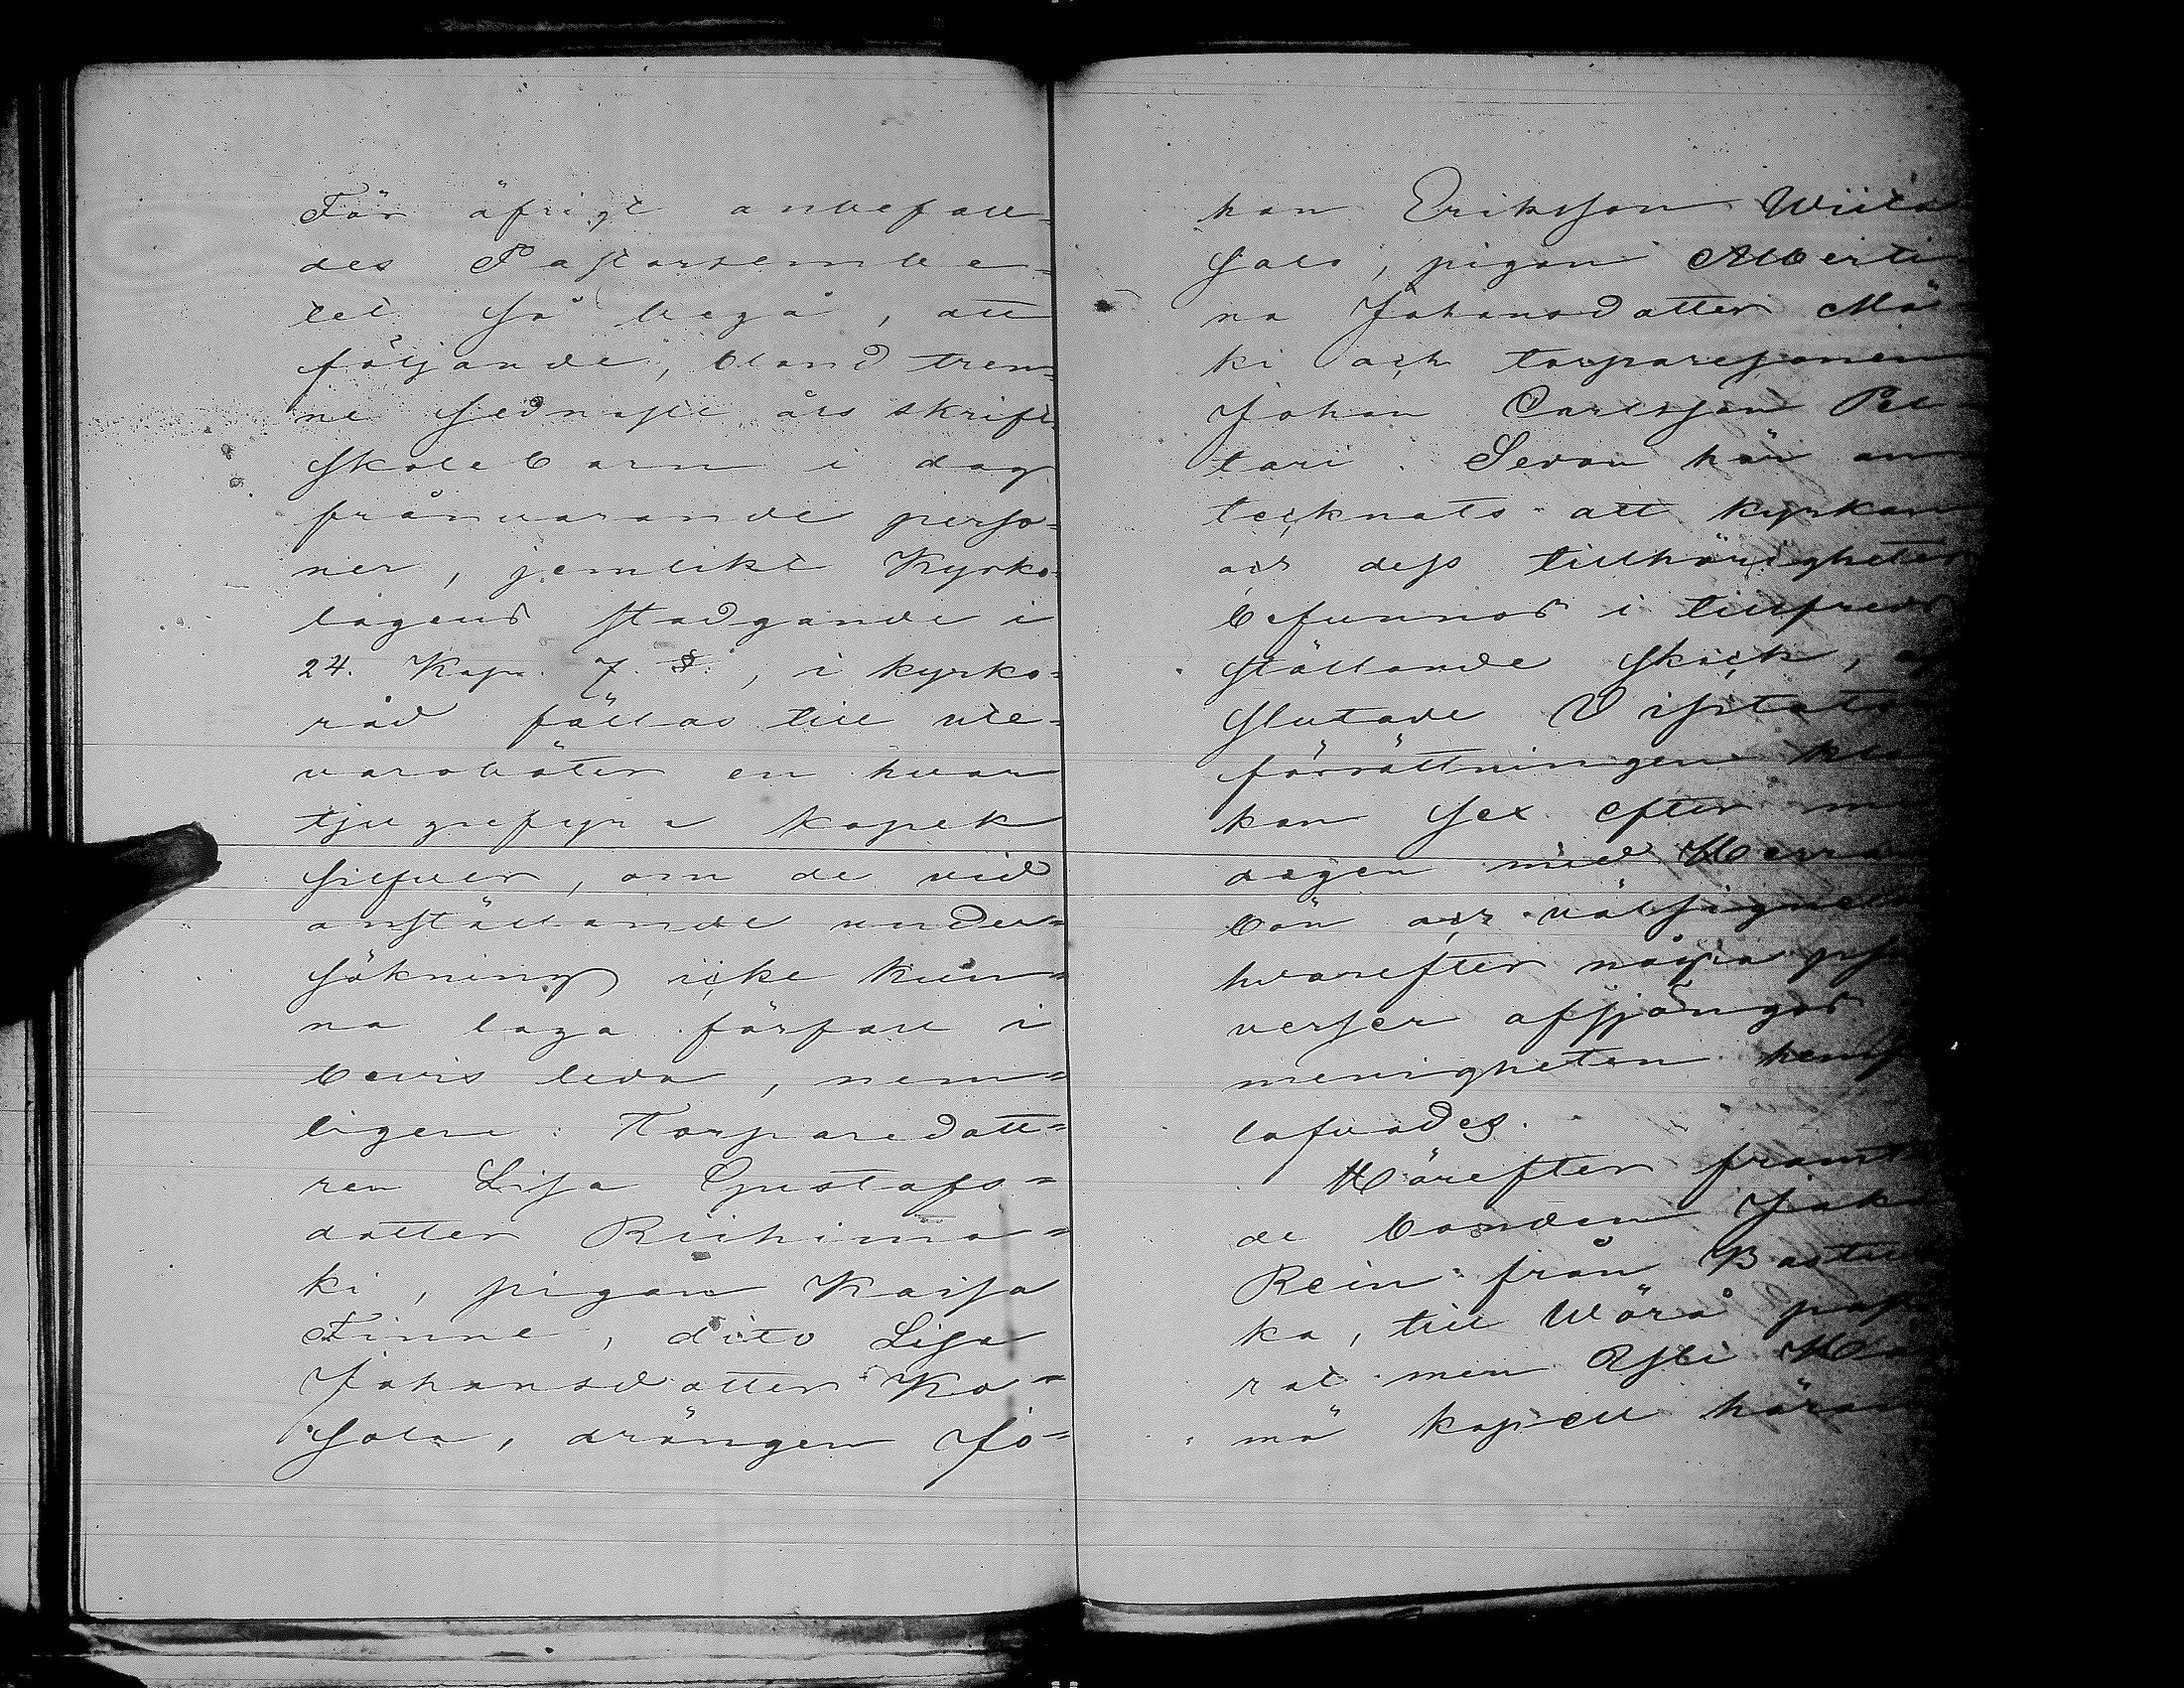 För öfrigt anbefall=
des Pastorsembe=
tet så begå, att
följande, bland tren=
ne sednaste års skrift=
skolebarn i dag
frånvarande perso=
ner, jemlikt Kyrko=
lagens stadgande i
24. Kap. 7. §., i kyrko=
råd fällas till ute=
varoböter en hvar
tjugefyra kopek
silfver, om de vid
anställande under=
sökning icke kun=
na laga förfall i
bevis leda, nem=
ligen: Torparedott=
ren Lisa Gustafs=
dotter Riihimä=
ki, pigan Kaisa
Finne, dito Lisa
Johansdotter Ko=
sola, drängen Jo=
han Eriksson Wiita
salo, pigan Alberti
na Johansdotter Mä
ki och torparesonen
Johan Carlsson Pel
tari. Sedan här an
tecknats att kyrkan
och dess tillhörigheter
befunnos i tillfreds
ställande skick,
slutade Visitats
förrättningen kloc
kan sex efter mid
dagen med Herrans
bön och välsignelse
hvarefter några psalm
verser afsjöngos
menigheten hemf
lofvades.
Härefter framt
de bonden Jak
Rein från Bastu
ka, till Wörå pasto
rat men Ylihär
mä kapell hörande